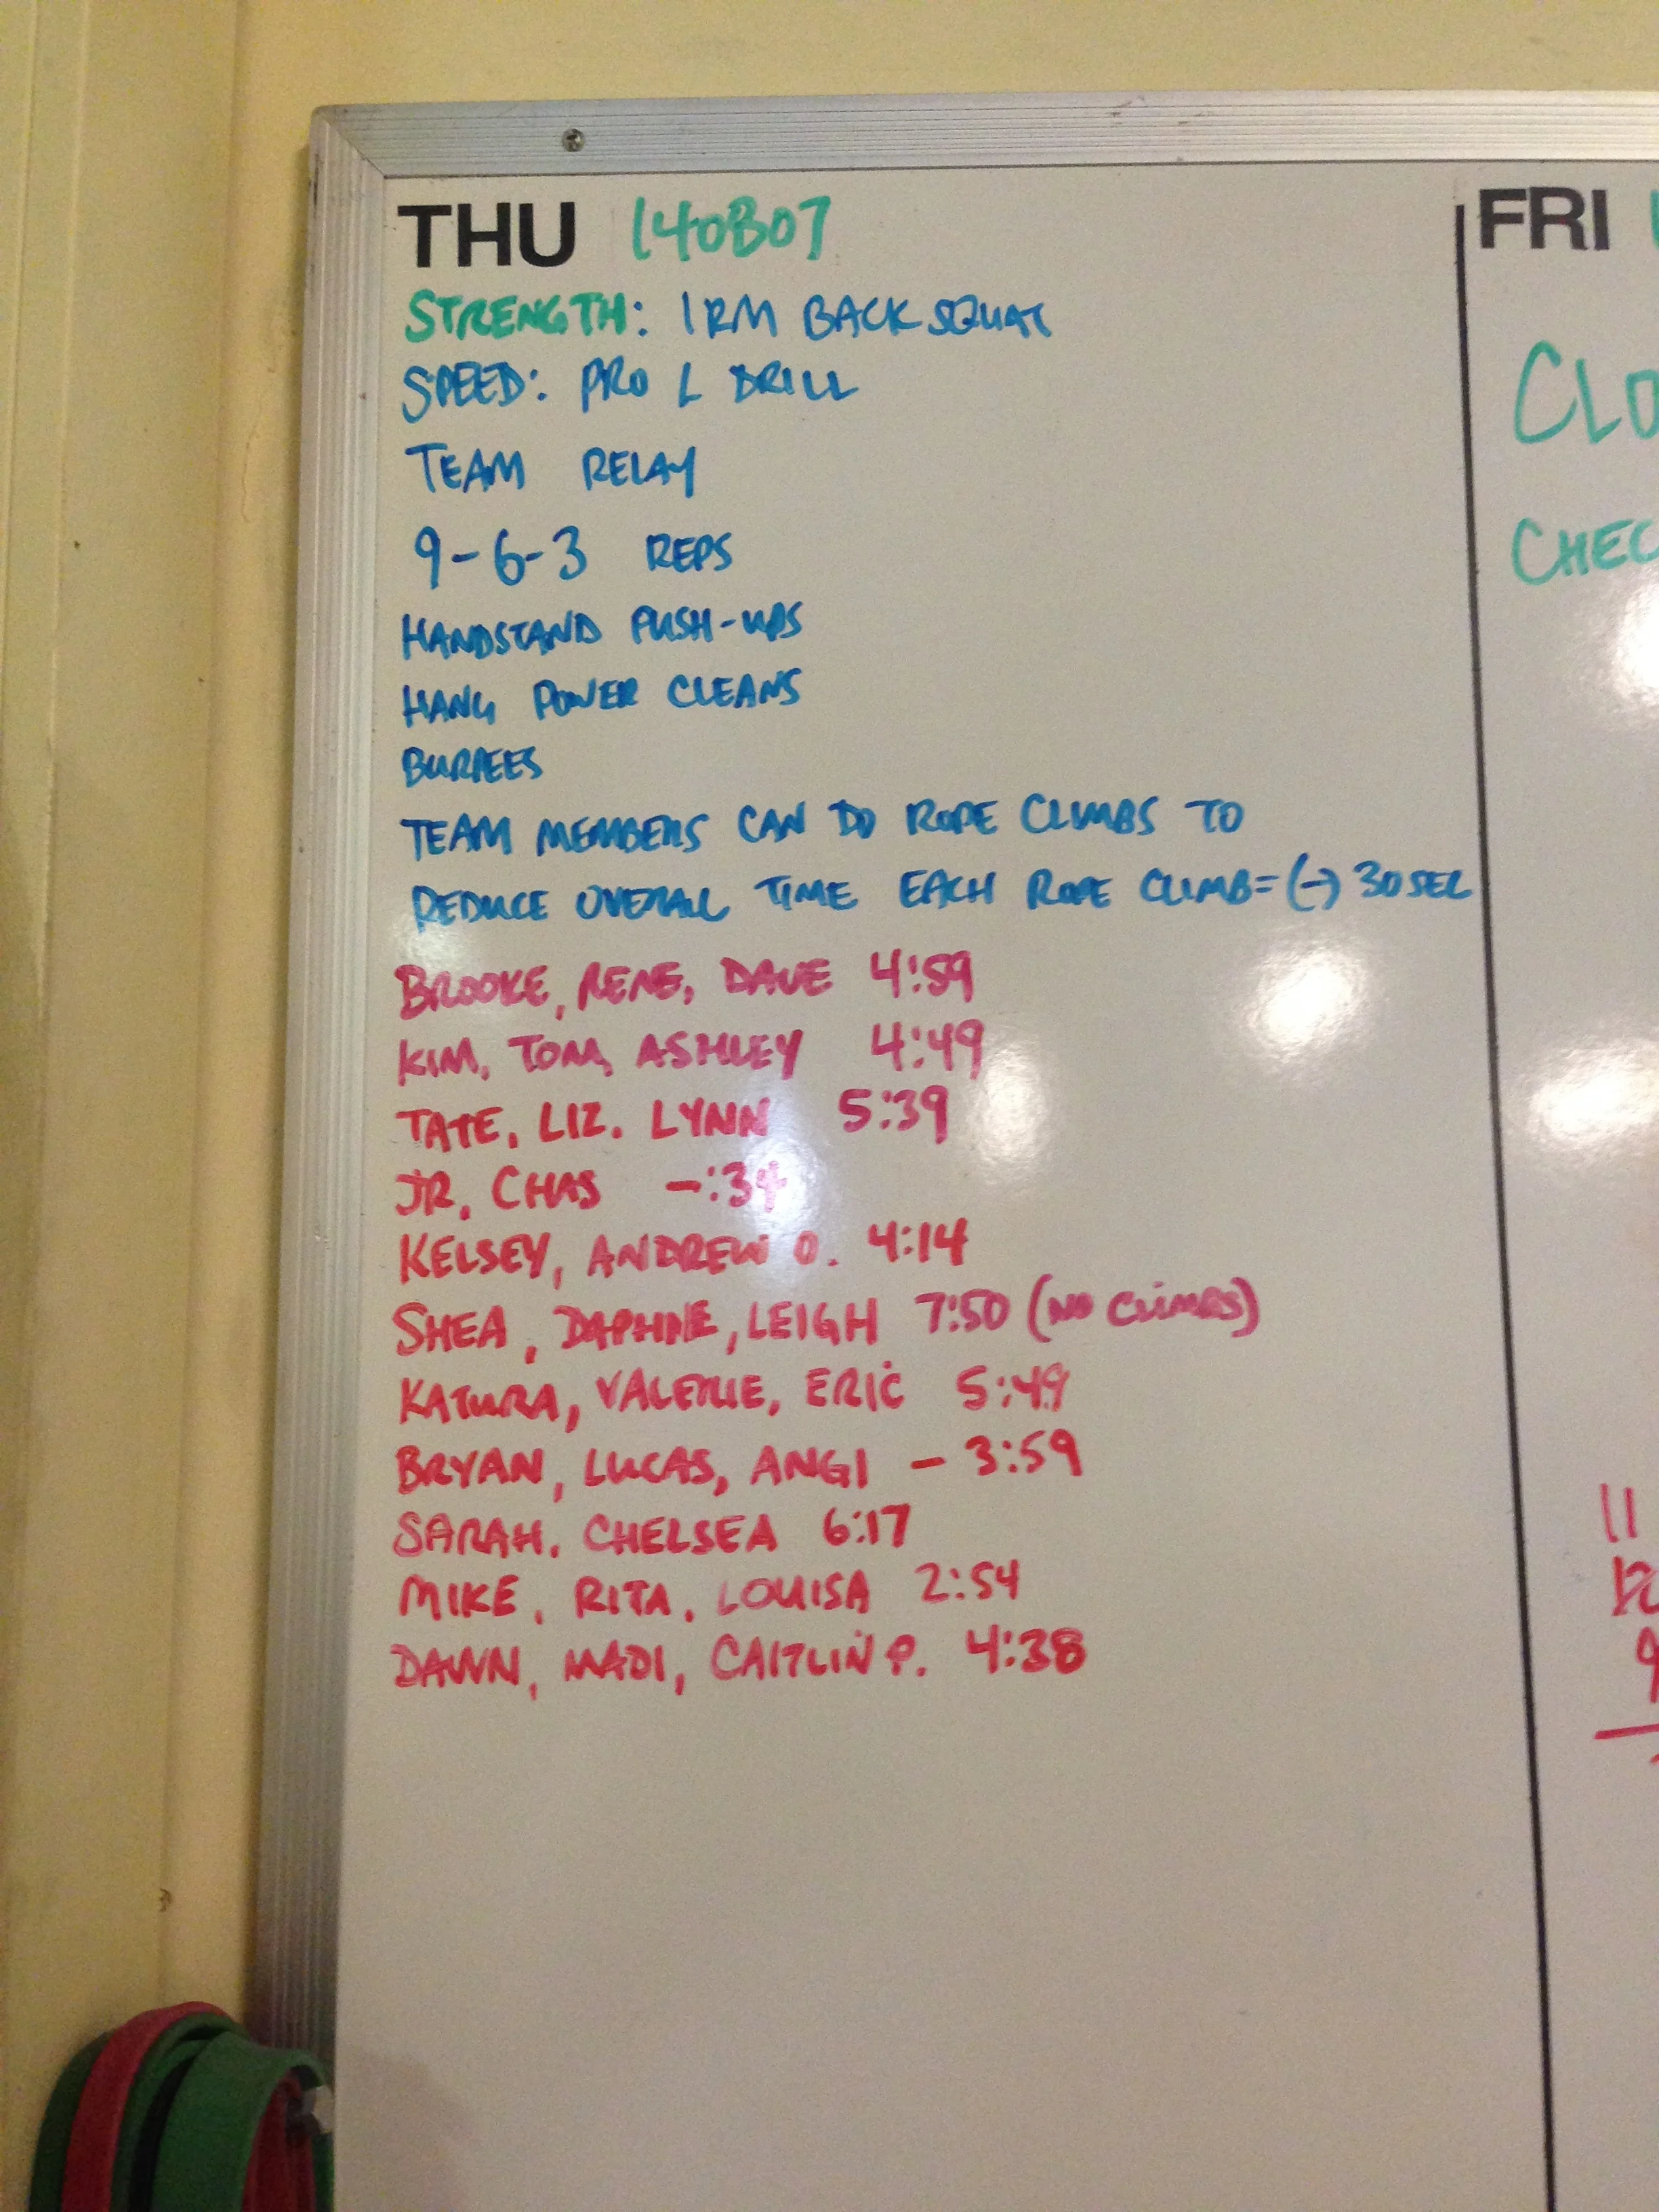 THU 140807
STRENGTH: 1RM BACK SQUAT
SPEED: PRO L DRILL
TEAM RELAY
9-6-3 REPS
HANDSTAND PUSH-UPS
HANG POWER CLEANS
BURPEES
TEAM MEMBERS CAN DO ROPE CLIMBS TO
REDUCE OVERALL TIME EACH ROPE CLIMB=(-) 30SEC
BROOKE, RENE, DAVE 4:59
KIM, TOM, ASHLEY 4:49
TATE, LIZ, LYNN 5:39
JR, CHAS -:34
KELSEY, ANDREW O. 4:14
SHEA, DAPHNE, LEIGH 7:50 (NO CLIMBS)
KATURA, VALERIE, ERIC 5:49
BRYAN, LUCAS, ANGI - 3:59
SARAH, CHELSEA 6:17
MIKE, RITA, LOUISA 2:54
DAWN, MADI, CAITLIN P. 4:38
FRI
CLO
CHEC
11